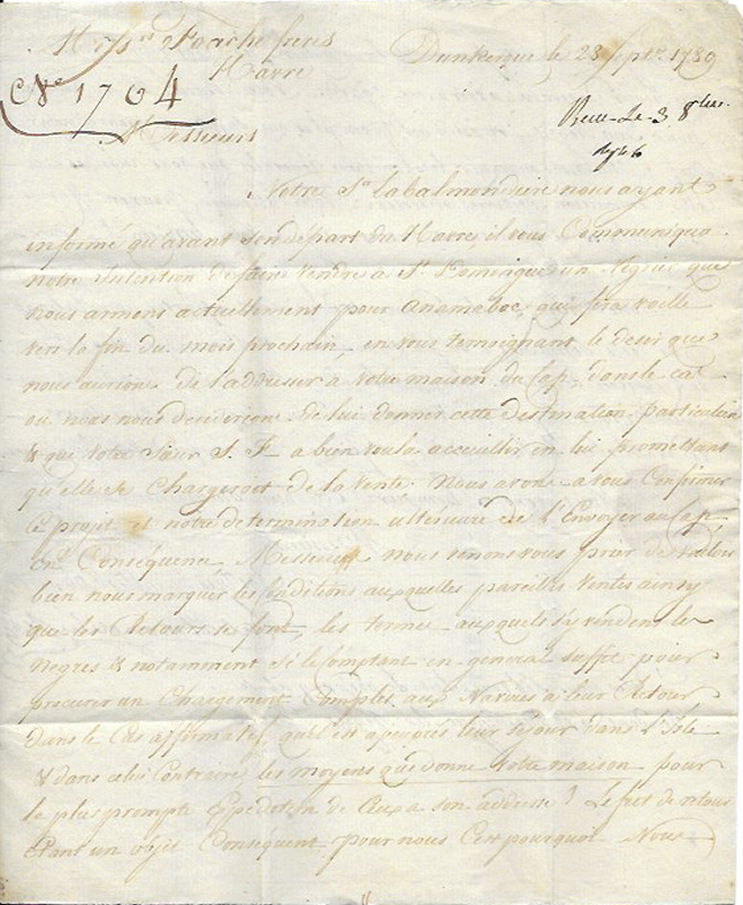 Mess.rs Foache freres
Havre
Dunkerque le 28 Sept.re 1789
N.o 1704
Recu Le 3 8bre.
Messieurs
Notre S.r Labalmondiere nous ayant
informé qu'avant son départ du Havre, il vous Communiqua
notre intention de faire vendre a S.t Domingue un Negrier que
nous armons actuellement pour Anamaboe, qui fera voile
vers la fin du mois prochain, en vous temoignant le desir que
nous aurions de l'addresser a votre maison du Cap, dans le cas
ou nous nous deciderions de lui donner cette destination particuliere
& que votre Sieur S. F. a bien voulu accueillir en lui promettant
qu'elle se Chargeroit de la vente. Nous avons a vous Confirmer
Ce projet et notre determination ulterieure de l'Envoyer au Cap,
en Conséquence, Messieurs nous venons vous prier de vouloir
bien nous marquer les Conditions auxquelles pareilles ventes ainsy
que les Retours se font, les termes auxquels s'y vendent les
Negres & notamment si le Comptant en general suffit pour
procurer un Chargement Complet aux Navires a leur Retour
dans le Cas affirmatif, quel est apeuprès leur séjour dans l'Isle
& dans celui Contraire les moyens que donne votre maison pour
la plus prompte Expedition de Ceux a son addresse? Le fret de retour
Etant un objet Conséquent pour nous C'est pourquoi Nous